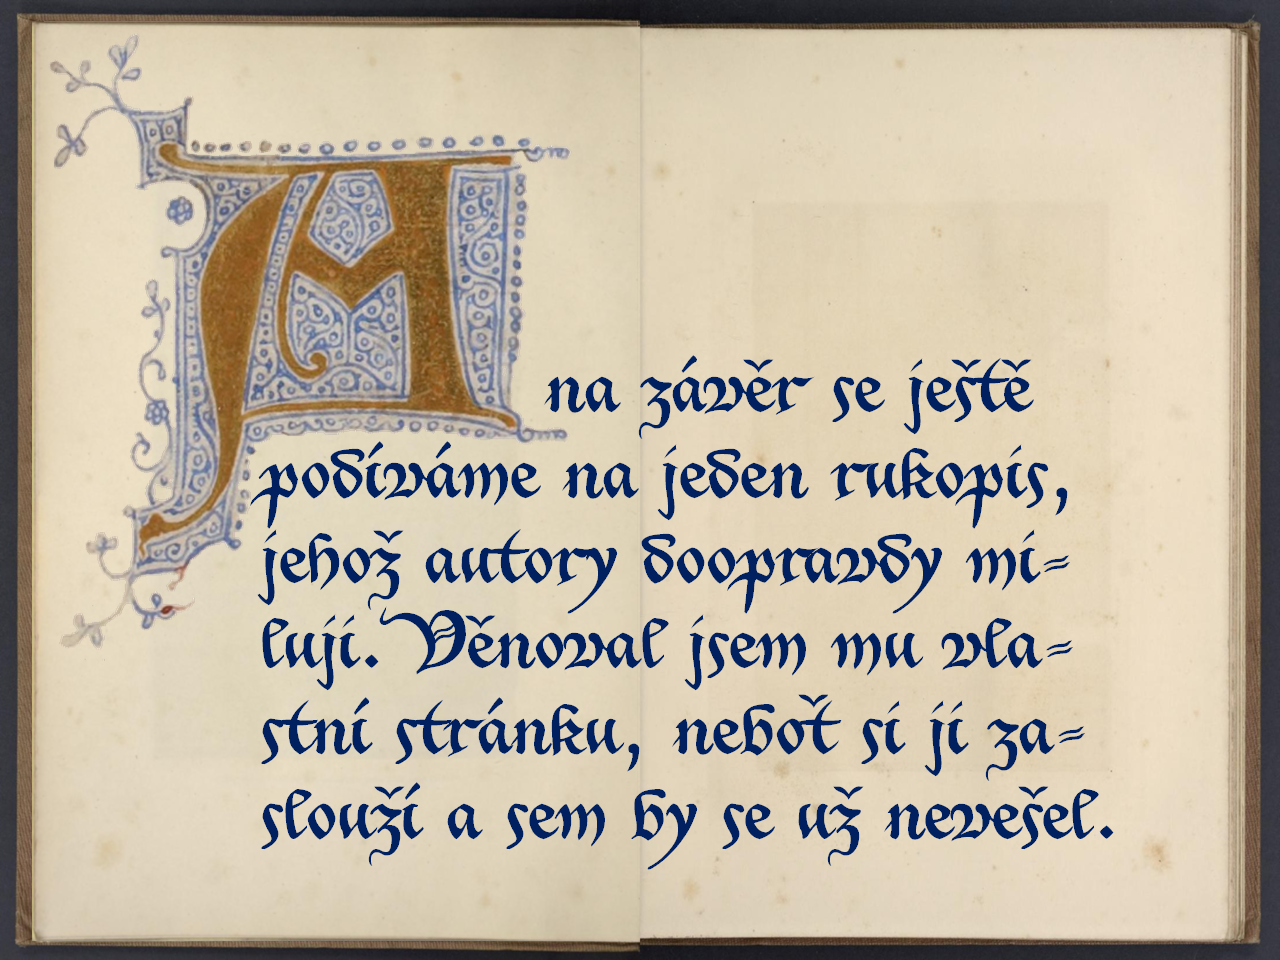 A na závěr se ještě
podíváme na jeden rukopis,
jehož autory doopravdy mi=
luji. Věnoval jsem mu vla=
stní stránku, neboť si ji za=
slouží a sem by se už nevešel.